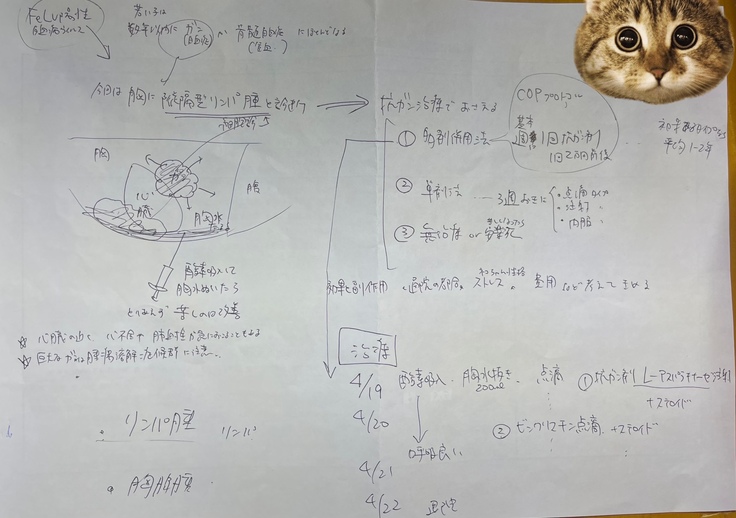 FeLV陽性
白血病ウイルス
若い子は
数年以内に ガン
(白血症)
か 骨髄
(貧血)
にほとんどなる
今回は 胸に 縦隔型リンパ腫 と診断
細胞診から
胸
心
肺
胸水
腹
酸素吸入して
胸水ぬいたら
とりあえず 苦しいのは改善
☆ 心臓の近く 心不全や 肺血栓が急におこることもある
☆ 巨大なガンは腫瘍溶解症候群に注意
・リンパ腫 リンパ
・胸腺腫
抗ガン治療でおさえる
① 多剤併用法
COPプロトコル
基本
週1回抗ガン剤
1回2万円前後
初来あるネコちゃんなら
平均1-2年
② 単剤法 … 3週おきに
・点滴タイプ
・注射 〃
・内服 〃
③ 無治療 or 安楽死
苦しい
効果と副作用 、通院の都合、ストレス。費用など考えてきめる
治療
4/19 酸素吸入・胸水抜き 点滴 ① 抗ガン剤 L-アスパラギナーゼ注射
200ml
+ステロイド
4/20
② ビンクリスチン点滴 +ステロイド
呼吸良い
4/21
4/22 退院